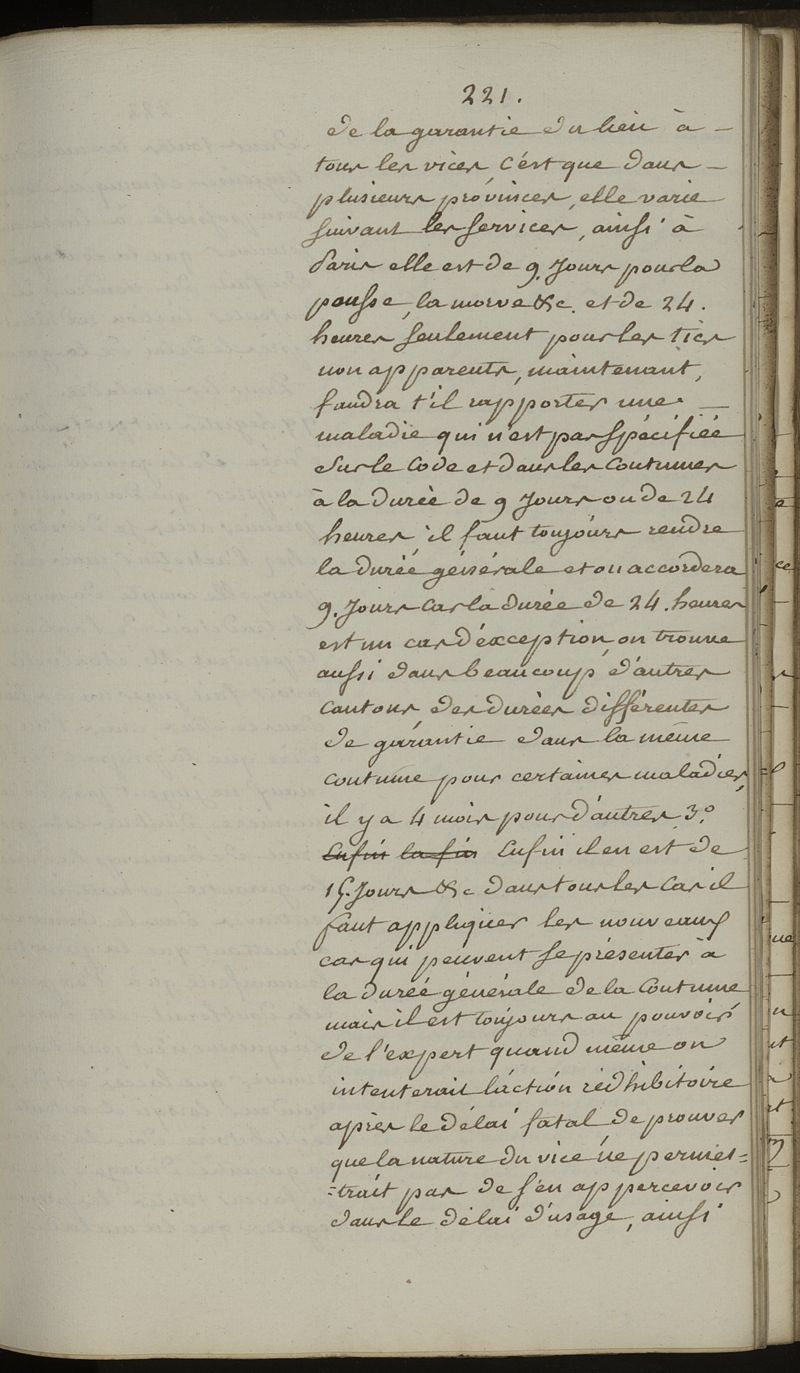 221.
de la garantie du lieu à
tous les vices, c'est que dans
plusieurs provinces, elle varie
suivant les services, ainsi à
Paris elle est de 9. Jours pour la
pousse, la morve &c. et de 24.
heures seulement pour les tics
non apparents, maintenant,
faudra t'il rapporter une
maladie qui n'est pas spécifiée
sur le Code et dans les Coutumes
à la durée de 9 Jours ou de 24
heures il faut toujours rendre
la durée générale et on accordera
9. Jours car la durée de 24. heures
est un cas d'éxception, on trouve
aussi dans beaucoup d'autres
cantons des durées différentes
de garantie dans la même
coutume pour certaines maladies,
il y a 4 mois pour d'autres 3.°
Enfin la fin Enfin il en est de
15. Jours &c dans tous les Cas il
faut appliquer les nouveaux
cas qui peuvent se présenter à
la durée générale de la Coutume
mais il est toujours au pouvoir
de l'expert quand même on
intenterait l'action rédhibitoire
après le délai fatal de prouver
que la nature du vice ne permet=
=trait pas de s'en appercevoir
dans le délai d'usage, ainsi